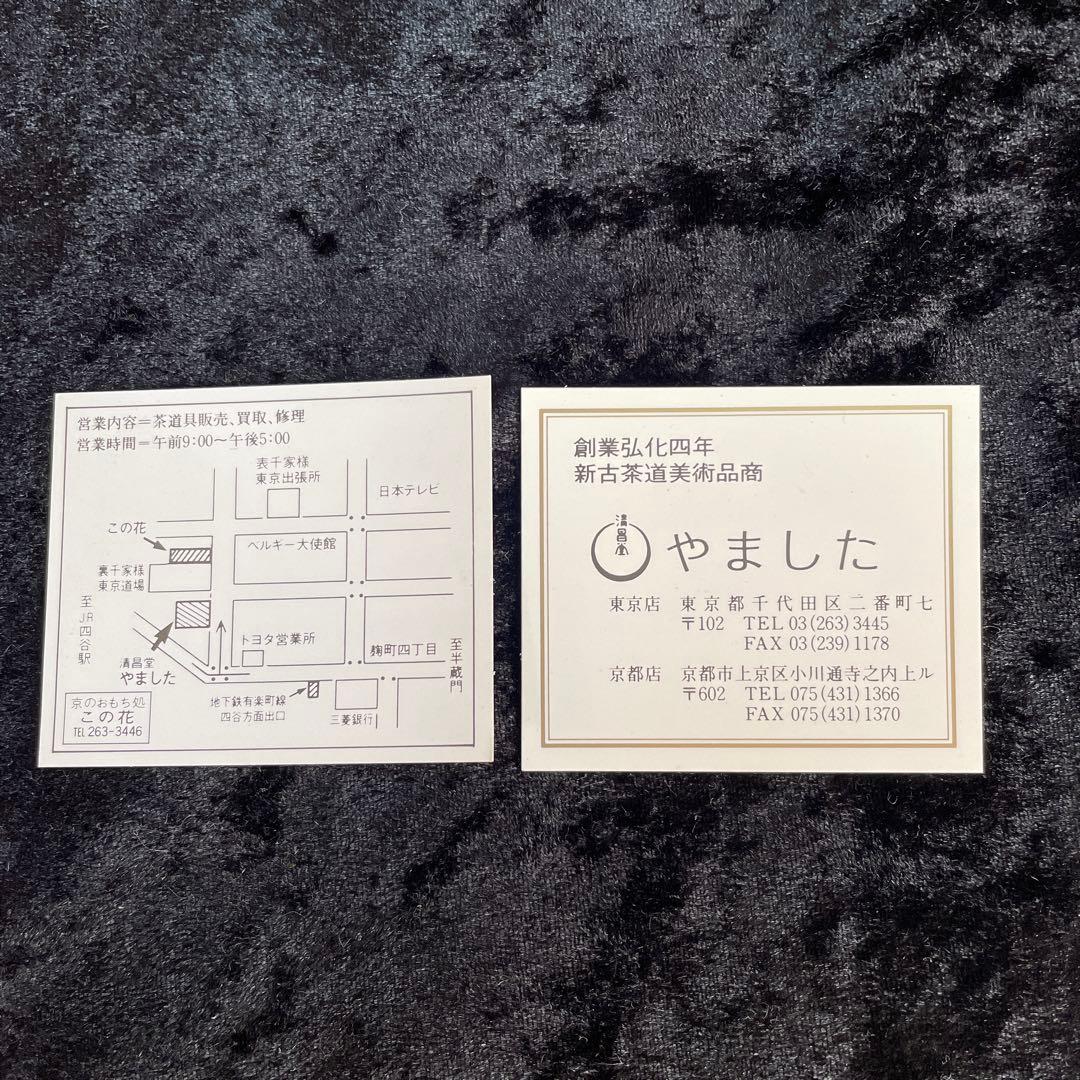 営業内容=茶道具販売、買取、修理
営業時間=午前9:00〜午後5:00
表千家様
東京出張所
日本テレビ
この花
ベルギー大使館
裏千家様
東京道場
至JR四谷駅
トヨタ営業所
麹町四丁目
至半蔵門
清昌堂
やました
地下鉄有楽町線
四谷方面出口
三菱銀行
京のおもち処
この花
TEL 263-3446
創業弘化四年
新古茶道美術品商
清昌堂
やました
東京店 東京都千代田区二番町七
〒102 TEL 03(263)3445
FAX 03(239)1178
京都店 京都市上京区小川通寺之内上ル
〒602 TEL 075(431)1366
FAX 075(431)1370